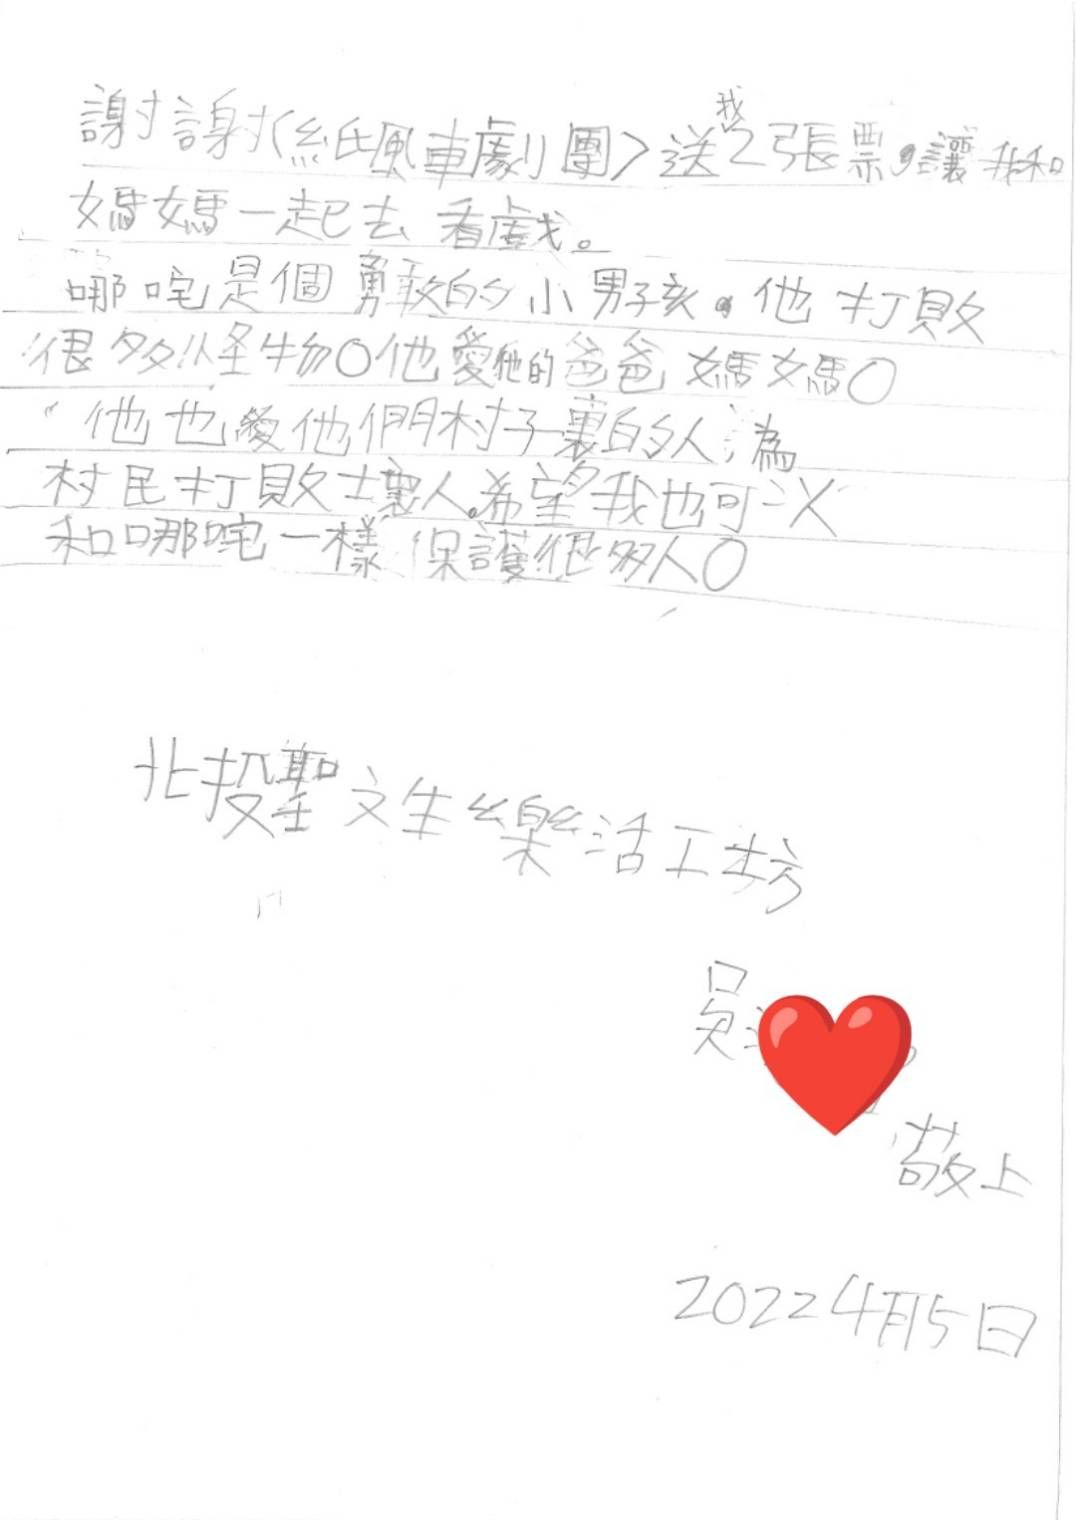 謝謝〈紙風車劇團〉送我2張票。讓我和
媽媽一起去看戲。
哪吒是個勇敢的小男孩。他打敗
很多怪物。他愛他的爸爸媽媽。
他也愛他們村子裏的人為
村民打敗壞人。希望我也可以
和哪吒一樣保護很多人。
北投聖文生樂活工坊
吳
敬上
2022 4月5日